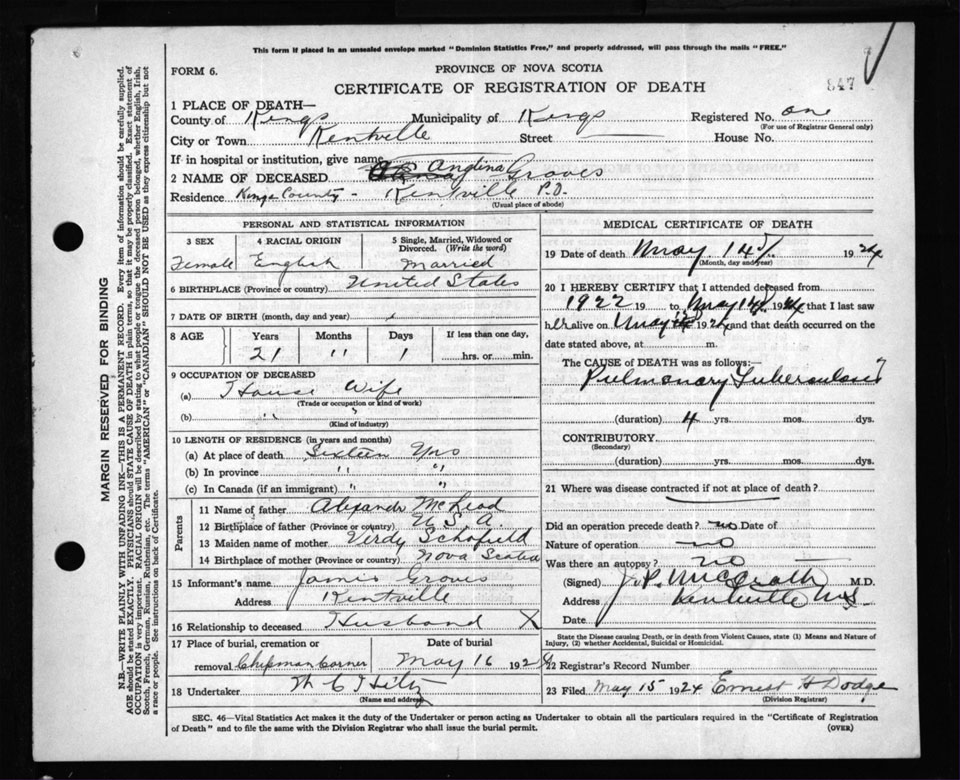 This form if placed in an unsealed envelope marked "Dominion Statistics Free," and properly addressed, will pass through the mails "FREE."
FORM 6.
PROVINCE OF NOVA SCOTIA
847
CERTIFICATE OF REGISTRATION OF DEATH
1 PLACE OF DEATH—
County of Kings Municipality of Kings Registered No. one
(For use of Registrar General only)
City or Town Kentville Street House No.
If in hospital or institution, give name
2 NAME OF DECEASED Angtina Groves
Residence Kings County - Kentville P.O.
(Usual place of abode)
PERSONAL AND STATISTICAL INFORMATION
3 SEX 4 RACIAL ORIGIN 5 Single, Married, Widowed or Divorced. (Write the word)
Female English Married
6 BIRTHPLACE (Province or country) United States
7 DATE OF BIRTH (month, day and year)
8 AGE Years Months Days If less than one day,
21 " 1 hrs. or min.
9 OCCUPATION OF DECEASED
(a) House Wife
(Trade or occupation or kind of work)
(b) "
(Kind of industry)
10 LENGTH OF RESIDENCE (in years and months)
(a) At place of death Sixteen Yrs
(b) In province " "
(c) In Canada (if an immigrant) " "
Parents
11 Name of father Alexander McLeod
12 Birthplace of father (Province or country) U.S.A.
13 Maiden name of mother Verdy Schofield
14 Birthplace of mother (Province or country) Nova Scotia
15 Informant's name James Groves
Address Kentville
16 Relationship to deceased Husband X
17 Place of burial, cremation or Date of burial
removal Chipman Corner May 16 1924
18 Undertaker W C Hiltz
(Name and address)
MEDICAL CERTIFICATE OF DEATH
19 Date of death May 14 1924
(Month, day and year)
20 I HEREBY CERTIFY that I attended deceased from
1922 19 to May 14 1924 that I last saw
her alive on May 1924 and that death occurred on the
date stated above, at m.
The CAUSE of DEATH was as follows:—
Pulmonary Tuberculosis
(duration) 4 yrs. mos. dys.
CONTRIBUTORY
(Secondary)
(duration) yrs. mos. dys.
21 Where was disease contracted if not at place of death?
Did an operation precede death? no Date of
Nature of operation no
Was there an autopsy? no
(Signed) J. P. McGrath M.D.
Address Kentville N.S.
Date
State the Disease causing Death, or in death from Violent Causes, state (1) Means and Nature of Injury, (2) whether Accidental, Suicidal or Homicidal.
22 Registrar's Record Number
23 Filed May 15 1924 Ernest H Dodge
(Division Registrar)
SEC. 46—Vital Statistics Act makes it the duty of the Undertaker or person acting as Undertaker to obtain all the particulars required in the "Certificate of Registration
of Death" and to file the same with the Division Registrar who shall issue the burial permit.
(OVER)
MARGIN RESERVED FOR BINDING
N.B.—WRITE PLAINLY WITH UNFADING INK—THIS IS A PERMANENT RECORD. Every item of information should be carefully supplied.
AGE should be stated EXACTLY. PHYSICIANS should STATE CAUSE OF DEATH in plain terms, so that it may be properly classified. Exact statement of
OCCUPATION is very important. RACIAL ORIGIN will be described by stating to what people or tongue the deceased person belonged, whether English, Irish,
Scotch, French, German, Russian, Ruthenian, etc. The terms "AMERICAN" or "CANADIAN" SHOULD NOT BE USED as they express citizenship but not
a race or people. See instructions on back of Certificate.